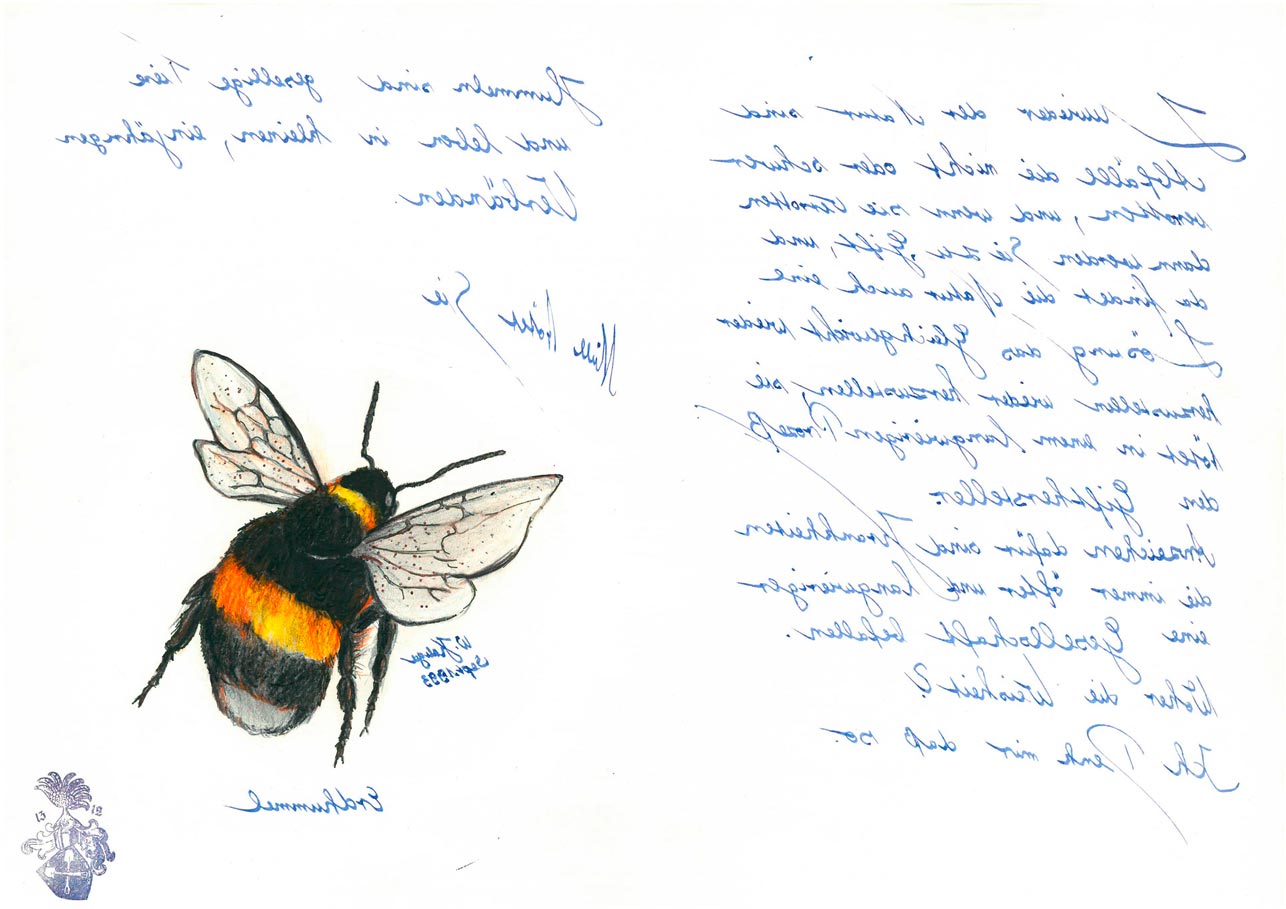 Zuwieder der Natur sind
Abfälle die nicht oder schwer
verotten, und wenn sie Verrotten
dann werden Sie zu Gift, und
da findet die Natur auch eine
Lösung das Gleichgewicht wieder
herzustellen wieder herzustellen, sie
tötet in einem langwierigen Prozeß
den Gifthersteller.
Anzeichen dafür sind Krankheiten
die immer öfter und langwieriger
eine Gesellschaft befallen.
Woher die Weisheit?
Ich Denk mir daß so.
Hummeln sind gesellige Tiere
und leben in kleinen, einjährigen
Verbänden.
Müll tötet Sie
W.
Sept. 1993
Erdhummel